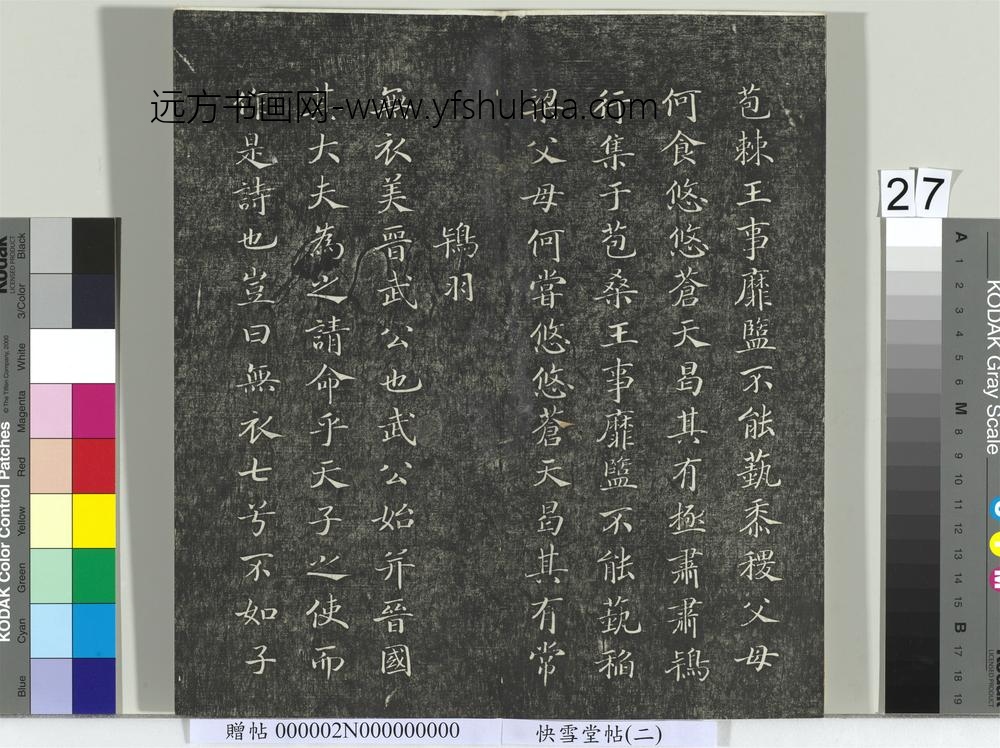 苞棘王事靡盬不能蓺黍稷父母
何食悠悠蒼天曷其有極肅肅鴇
行集于苞桑王事靡盬不能蓺稻
梁父母何嘗悠悠蒼天曷其有常
鴇羽
無衣美晉武公也武公始并晉國
其大夫為之請命乎天子之使而
作是詩也豈曰無衣七兮不如子
远方书画网-www.yfshuhua.com
27
贈帖 000002N000000000
快雪堂帖(二)
KODAK Color Control Patches
© The Tiffen Company, 2000
Kodak
LICENSED PRODUCT
Blue
Cyan
Green
Yellow
Red
Magenta
White
3/Color
Black
KODAK Gray Scale
A 1 2 3 4 5 6 M 8 9 10 11 12 13 14 15 B 17 18 19
C
Y
M